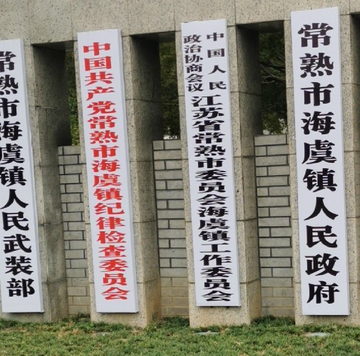 常熟市海虞镇人民武装部
中国共产党常熟市海虞镇纪律检查委员会
中国人民
政治协商会议
江苏省常熟市委员会海虞镇工作委员会
常熟市海虞镇人民政府